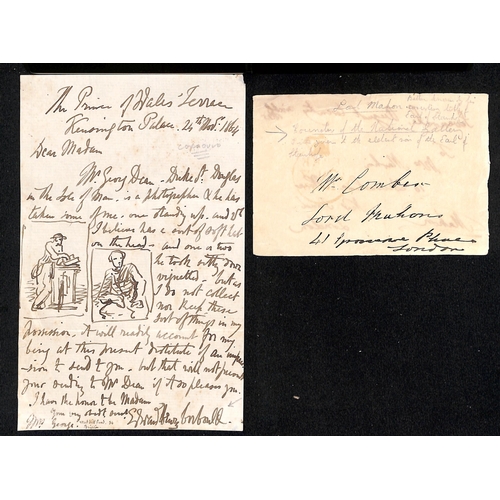 The Prince of Wales' Terrace
Kensington Palace. 24th Novr. 1864
Dear Madam
Mr George Dean - Duke St. Douglas
in the Isle of Man - is a photographer & he has
taken some of me - one standing up - and
I believe has a sort of soft hat
on the head - and one or two
he took sitting down
vignettes - but as
I do not collect
nor keep these
sort of things in my
possession, it will readily account for my
being at this present destitute of an impres-
sion to send to you - but that will not prevent
your sending to Mr Dean if it so pleases you.
I have the honor to be Madam
Your very obedt servt
Edward Henry Corbould
Mrs George
Lord Mahon
Founder of the National
Mr Combe
Lord Mahon's
41 Grosvenor Place
London